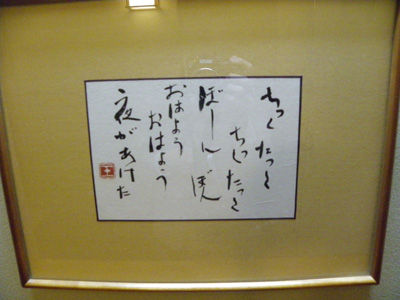 ちっく たっく
ちっく たっく
ぼーん ぼん
おはよう
おはよう
夜があけた